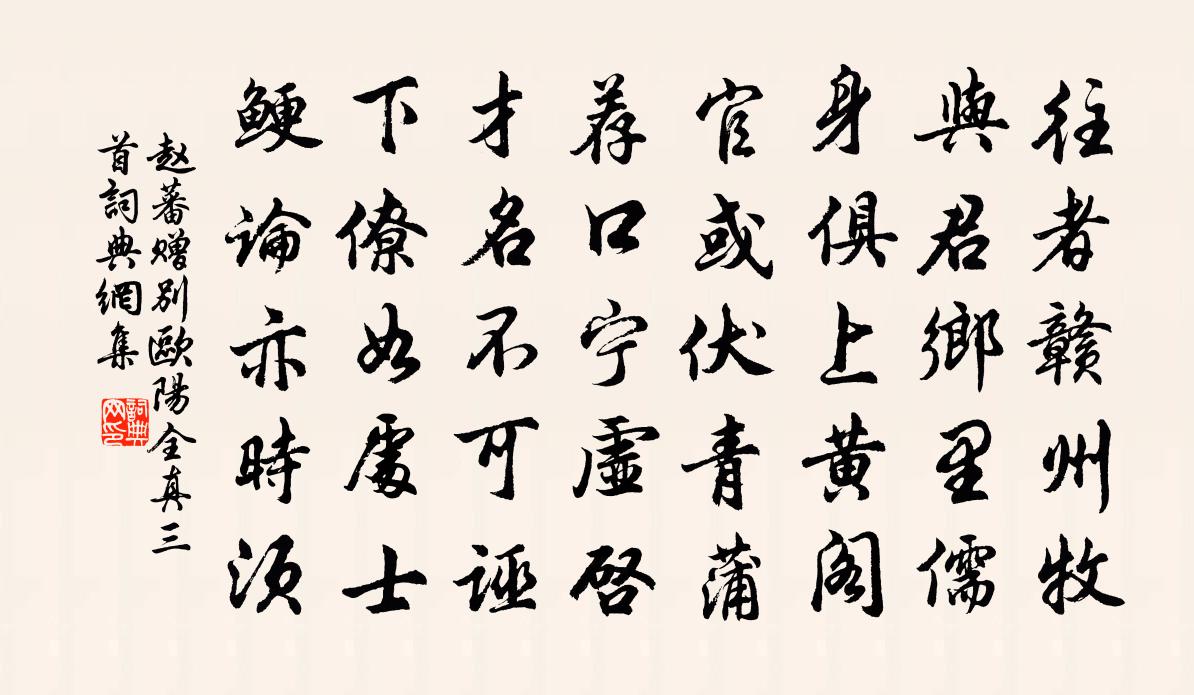 往者赣州牧
與君鄉里儒
身俱上黄阁
官或伏青蒲
荐口宁虚启
才名不可诬
下僚如處士
鲠论亦時须
赵蕃赠别歐陽全真三
首詞典網集
詞典网印